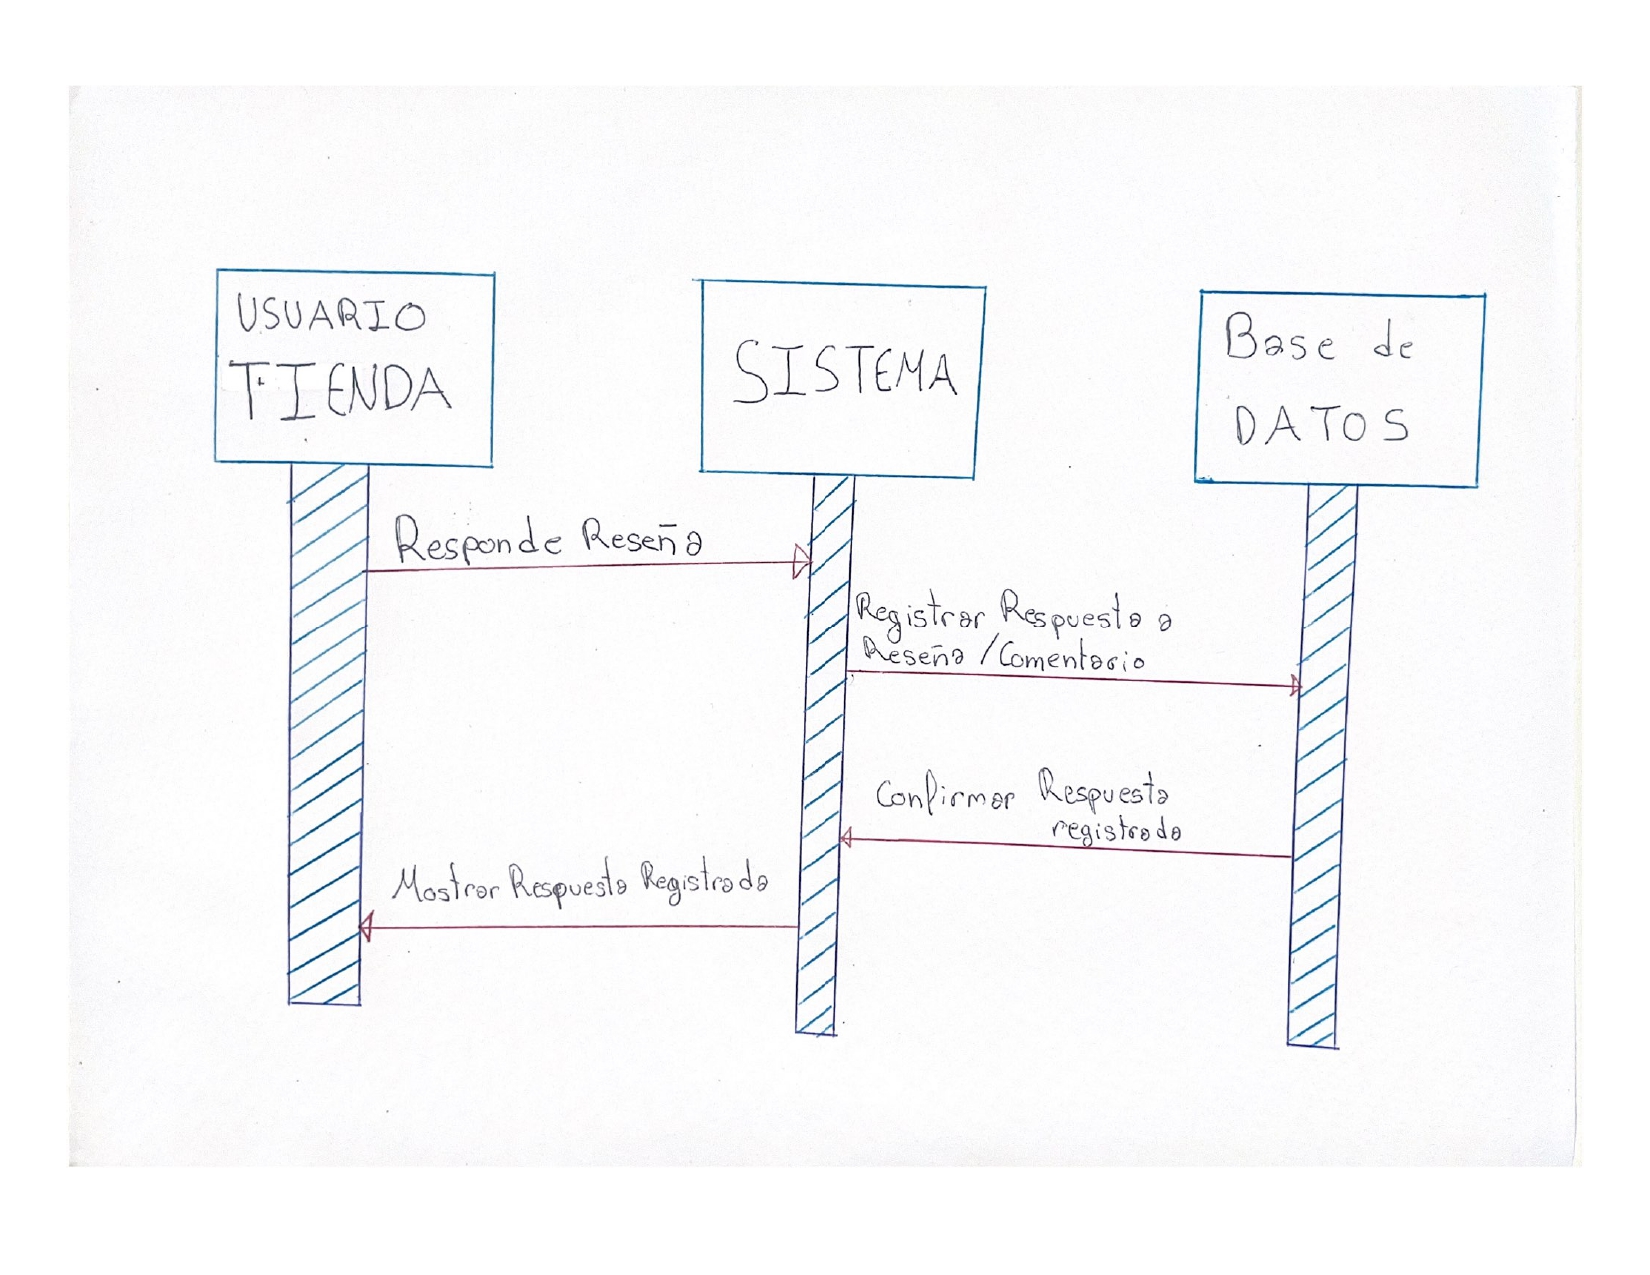 USUARIO
TIENDA
SISTEMA
Base de
DATOS
Responde Reseña
Registrar Respuesta a
Reseña / Comentario
Confirmar Respuesta
registrada
Mostrar Respuesta Registrada